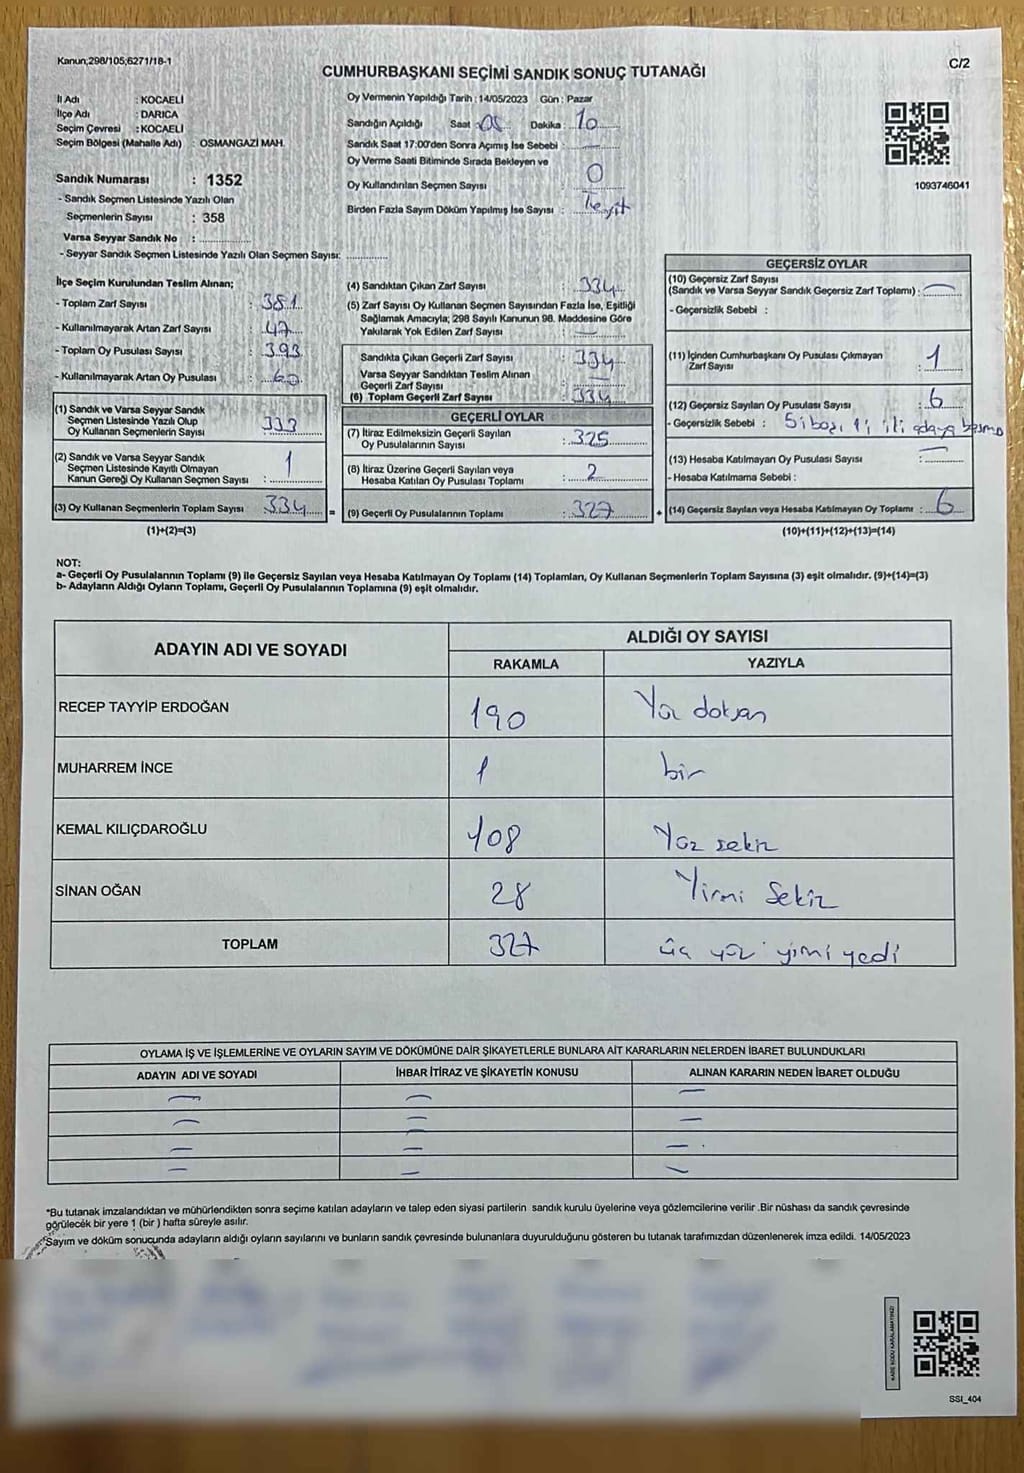 Kanun;298/105;6271/18-1
C/2
CUMHURBAŞKANI SEÇİMİ SANDIK SONUÇ TUTANAĞI
İl Adı : KOCAELİ
İlçe Adı : DARICA
Seçim Çevresi : KOCAELİ
Seçim Bölgesi (Mahalle Adı) : OSMANGAZİ MAH.
Sandık Numarası : 1352
- Sandık Seçmen Listesinde Yazılı Olan
Seçmenlerin Sayısı : 358
Varsa Seyyar Sandık No :
- Seyyar Sandık Seçmen Listesinde Yazılı Olan Seçmen Sayısı:
Oy Vermenin Yapıldığı Tarih : 14/05/2023 Gün : Pazar
Sandığın Açıldığı Saat : 05 Dakika : 10
Sandık Saat 17:00'den Sonra Açımış İse Sebebi :
Oy Verme Saati Bitiminde Sırada Bekleyen ve
Oy Kullandırılan Seçmen Sayısı : 0
Birden Fazla Sayım Döküm Yapılmış İse Sayısı : Teyit
1093746041
İlçe Seçim Kurulundan Teslim Alınan;
- Toplam Zarf Sayısı : 381
- Kullanılmayarak Artan Zarf Sayısı : 47
- Toplam Oy Pusulası Sayısı : 393
- Kullanılmayarak Artan Oy Pusulası : 60
(1) Sandık ve Varsa Seyyar Sandık
Seçmen Listesinde Yazılı Olup
Oy Kullanan Seçmenlerin Sayısı : 333
(2) Sandık ve Varsa Seyyar Sandık
Seçmen Listesinde Kayıtlı Olmayan
Kanun Gereği Oy Kullanan Seçmen Sayısı : 1
(3) Oy Kullanan Seçmenlerin Toplam Sayısı : 334
(1)+(2)=(3)
(4) Sandıktan Çıkan Zarf Sayısı : 334
(5) Zarf Sayısı Oy Kullanan Seçmen Sayısından Fazla İse, Eşitliği
Sağlamak Amacıyla; 298 Sayılı Kanunun 98. Maddesine Göre
Yakılarak Yok Edilen Zarf Sayısı :
Sandıkta Çıkan Geçerli Zarf Sayısı : 334
Varsa Seyyar Sandıktan Teslim Alınan
Geçerli Zarf Sayısı :
(6) Toplam Geçerli Zarf Sayısı : 334
GEÇERLİ OYLAR
(7) İtiraz Edilmeksizin Geçerli Sayılan
Oy Pusulalarının Sayısı : 325
(8) İtiraz Üzerine Geçerli Sayılan veya
Hesaba Katılan Oy Pusulası Toplamı : 2
(9) Geçerli Oy Pusulalarının Toplamı : 327
GEÇERSİZ OYLAR
(10) Geçersiz Zarf Sayısı
(Sandık ve Varsa Seyyar Sandık Geçersiz Zarf Toplamı) :
- Geçersizlik Sebebi :
(11) İçinden Cumhurbaşkanı Oy Pusulası Çıkmayan
Zarf Sayısı : 1
(12) Geçersiz Sayılan Oy Pusulası Sayısı : 6
- Geçersizlik Sebebi : 5i boş, 1i iki adaya basma
(13) Hesaba Katılmayan Oy Pusulası Sayısı :
- Hesaba Katılmama Sebebi :
(14) Geçersiz Sayılan veya Hesaba Katılmayan Oy Toplamı : 6
(10)+(11)+(12)+(13)=(14)
NOT:
a- Geçerli Oy Pusulalarının Toplamı (9) ile Geçersiz Sayılan veya Hesaba Katılmayan Oy Toplamı (14) Toplamları, Oy Kullanan Seçmenlerin Toplam Sayısına (3) eşit olmalıdır. (9)+(14)=(3)
b- Adayların Aldığı Oyların Toplamı, Geçerli Oy Pusulalarının Toplamına (9) eşit olmalıdır.
ADAYIN ADI VE SOYADI ALDIĞI OY SAYISI
RAKAMLA YAZIYLA
RECEP TAYYİP ERDOĞAN 190 Yüz doksan
MUHARREM İNCE 1 bir
KEMAL KILIÇDAROĞLU 108 Yüz sekiz
SİNAN OĞAN 28 Yirmi Sekiz
TOPLAM 327 üç yüz yirmi yedi
OYLAMA İŞ VE İŞLEMLERİNE VE OYLARIN SAYIM VE DÖKÜMÜNE DAİR ŞİKAYETLERLE BUNLARA AİT KARARLARIN NELERDEN İBARET BULUNDUKLARI
ADAYIN ADI VE SOYADI İHBAR İTİRAZ VE ŞİKAYETİN KONUSU ALINAN KARARIN NEDEN İBARET OLDUĞU
*Bu tutanak imzalandıktan ve mühürlendikten sonra seçime katılan adayların ve talep eden siyasi partilerin sandık kurulu üyelerine veya gözlemcilerine verilir .Bir nüshası da sandık çevresinde
görülecek bir yere 1 (bir ) hafta süreyle asılır.
Sayım ve döküm sonucunda adayların aldığı oyların sayılarını ve bunların sandık çevresinde bulunanlara duyurulduğunu gösteren bu tutanak tarafımızdan düzenlenerek imza edildi. 14/05/2023
KARE KODU KARALAMAYINIZ!
SSI_404